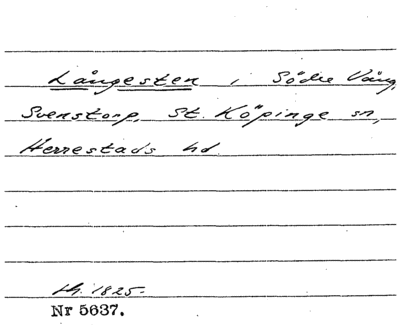 Långesten i Södre Vång,
Svenstorp, St. Köpinge sn,
Herrestads hd.
1825.
Nr 5637.